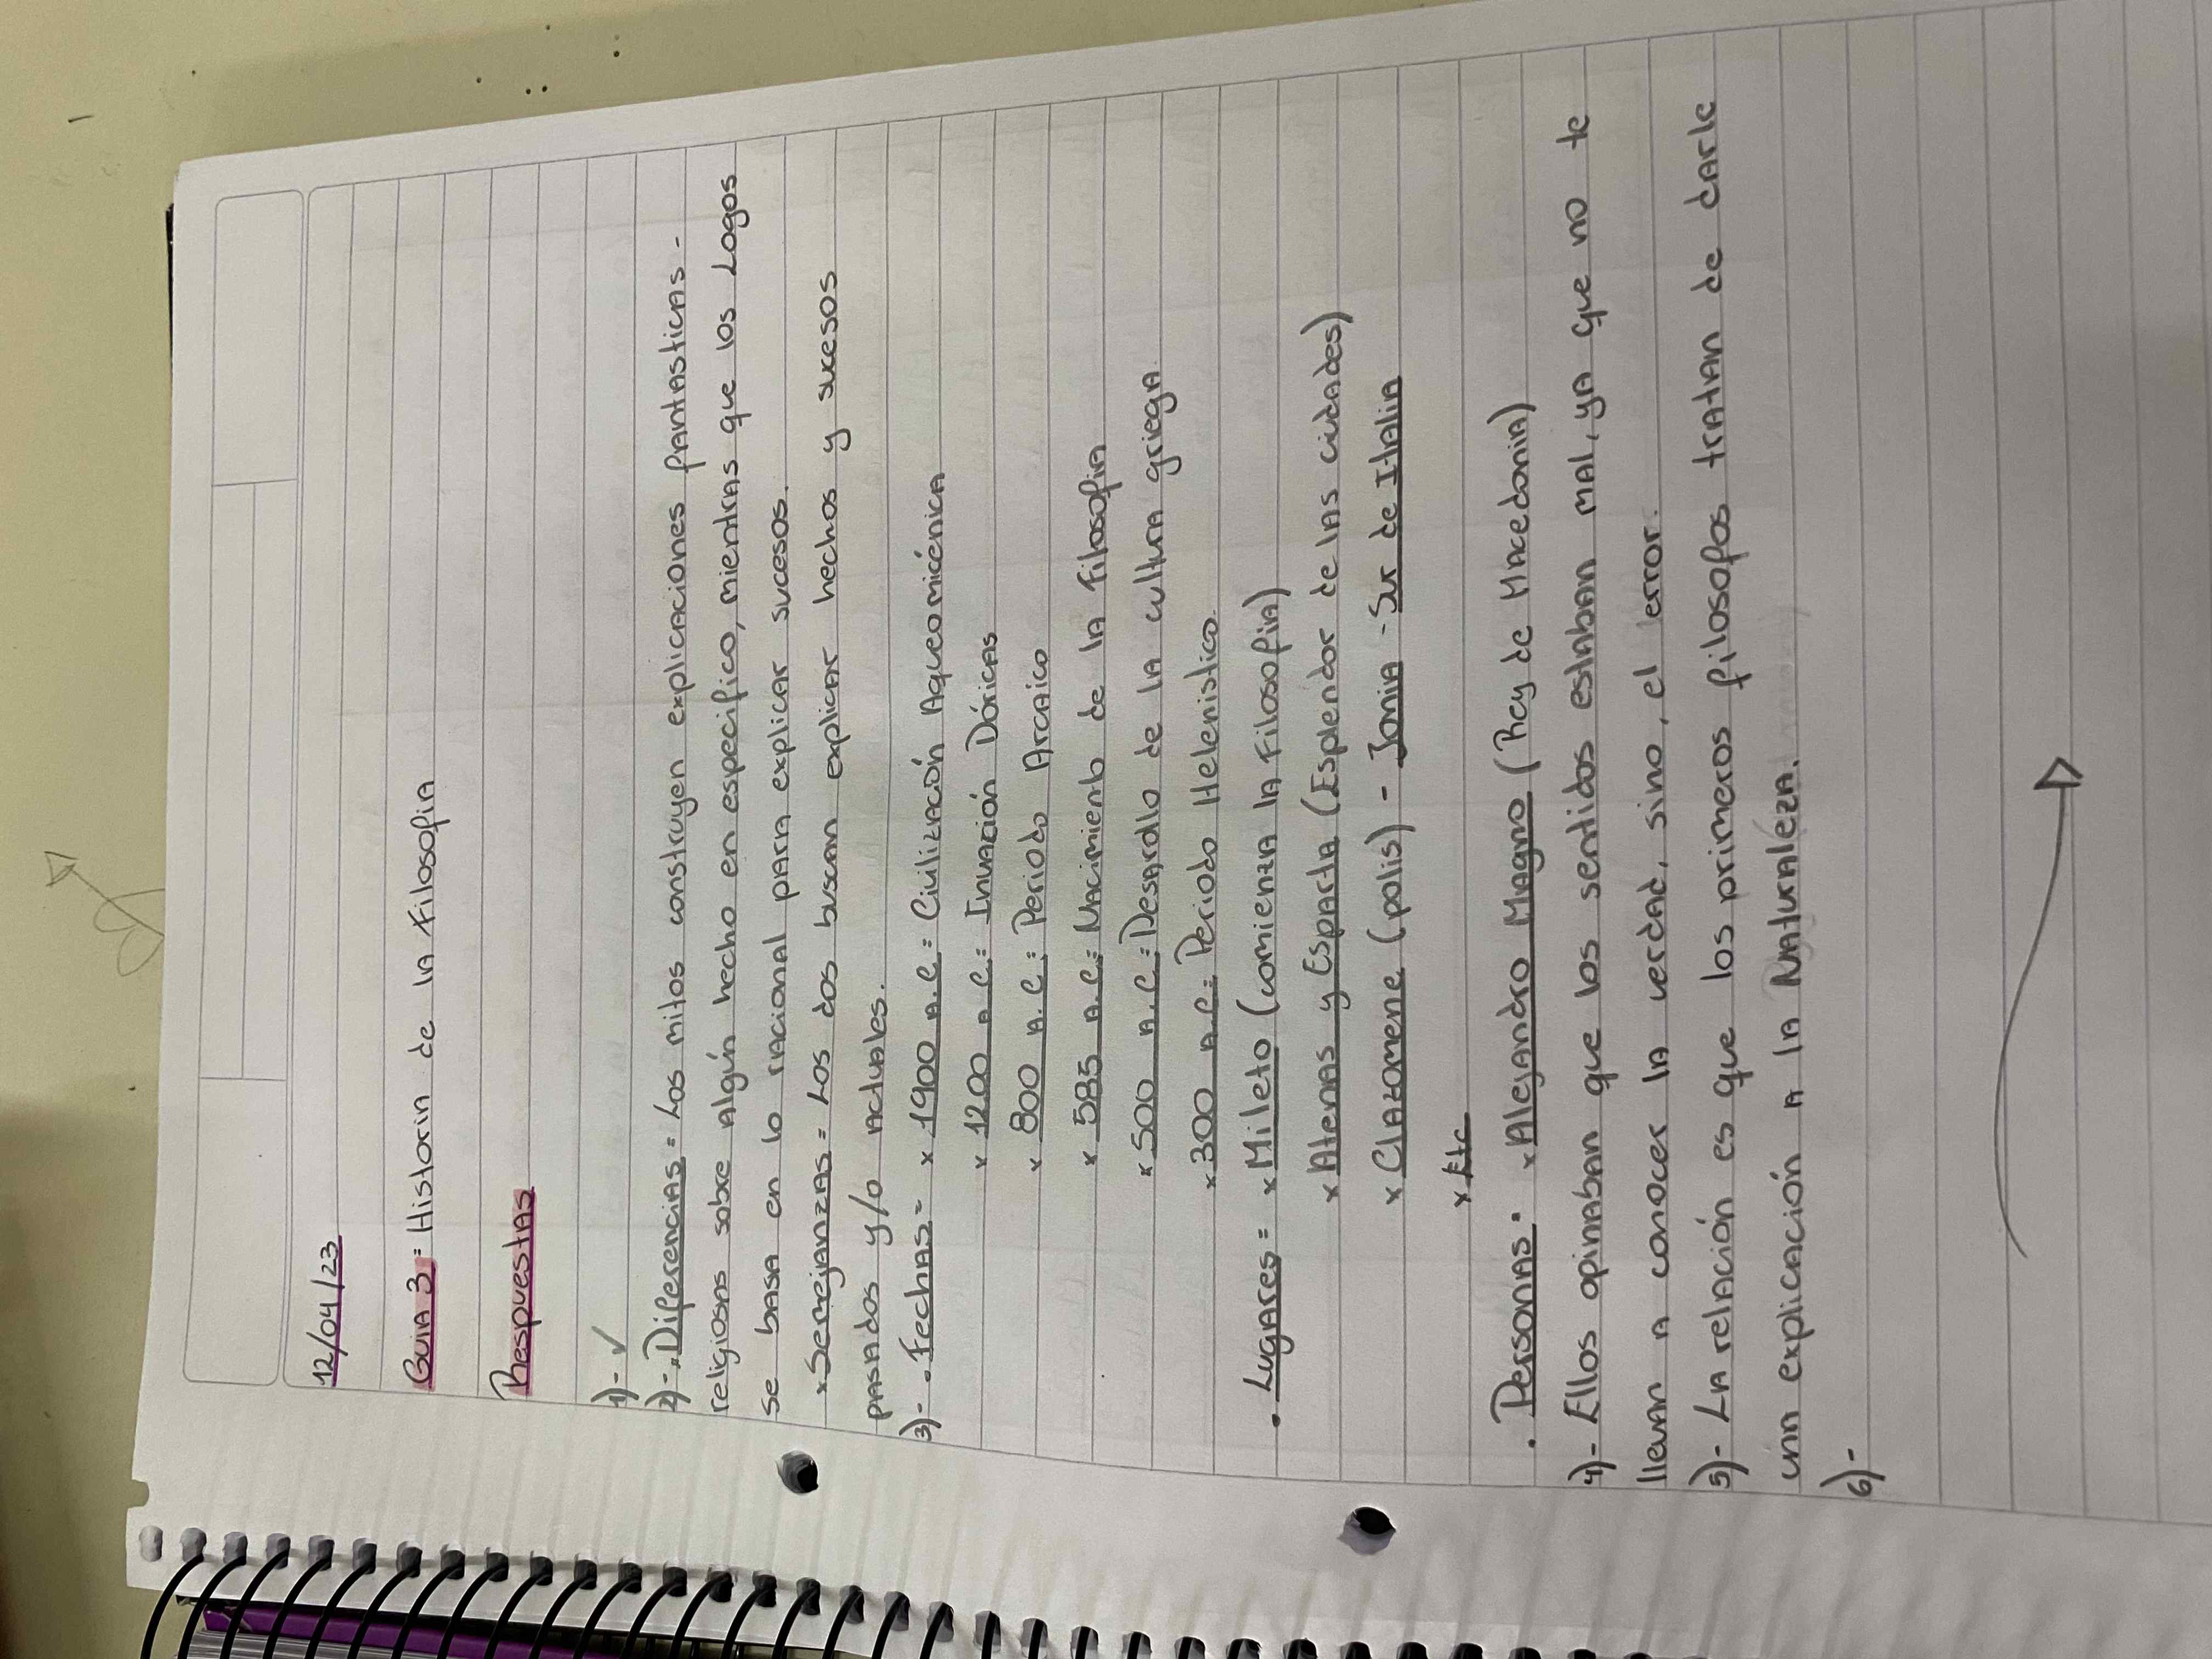 12/04/23
Guia 3= Historia de la Filosofia
Respuestas
1)- ✓
2)-. Diferencias= Los mitos construyen explicaciones fantasticas -
religiosas sobre algún hecho en especifico, mientras que los Logos
se basa en lo racional para explicar sucesos.
x Semejanzas= Los dos buscan explicar hechos y sucesos
pasados y/o actuales.
3)- . Fechas= x 1900 a.C= Civilización Aqueomicénica
x 1200 a.C= Invación Dóricas
x 800 a.C= Periodo Arcaico
x 585 a.C= Nacimiento de la Filosofia
x 500 a.C= Desarollo de la cultura griega.
x 300 a.C= Periodo Helenistico.
. Lugares= x Mileto (comienza la Filosofia)
x Atenas y Esparta (Esplendor de las cuidades)
x Clazomene (polis) - Jonia - Sur de Italia
x Etc
. Personas. x Alejandro Magno (Rey de Macedonia)
4)- Ellos opinaban que los sentidos estaban mal, ya que no te
llevan a conocer la verdad, sino, el error.
5)- La relación es que los primeros filosofos tratan de darle
una explicación a la Naturaleza.
6)-